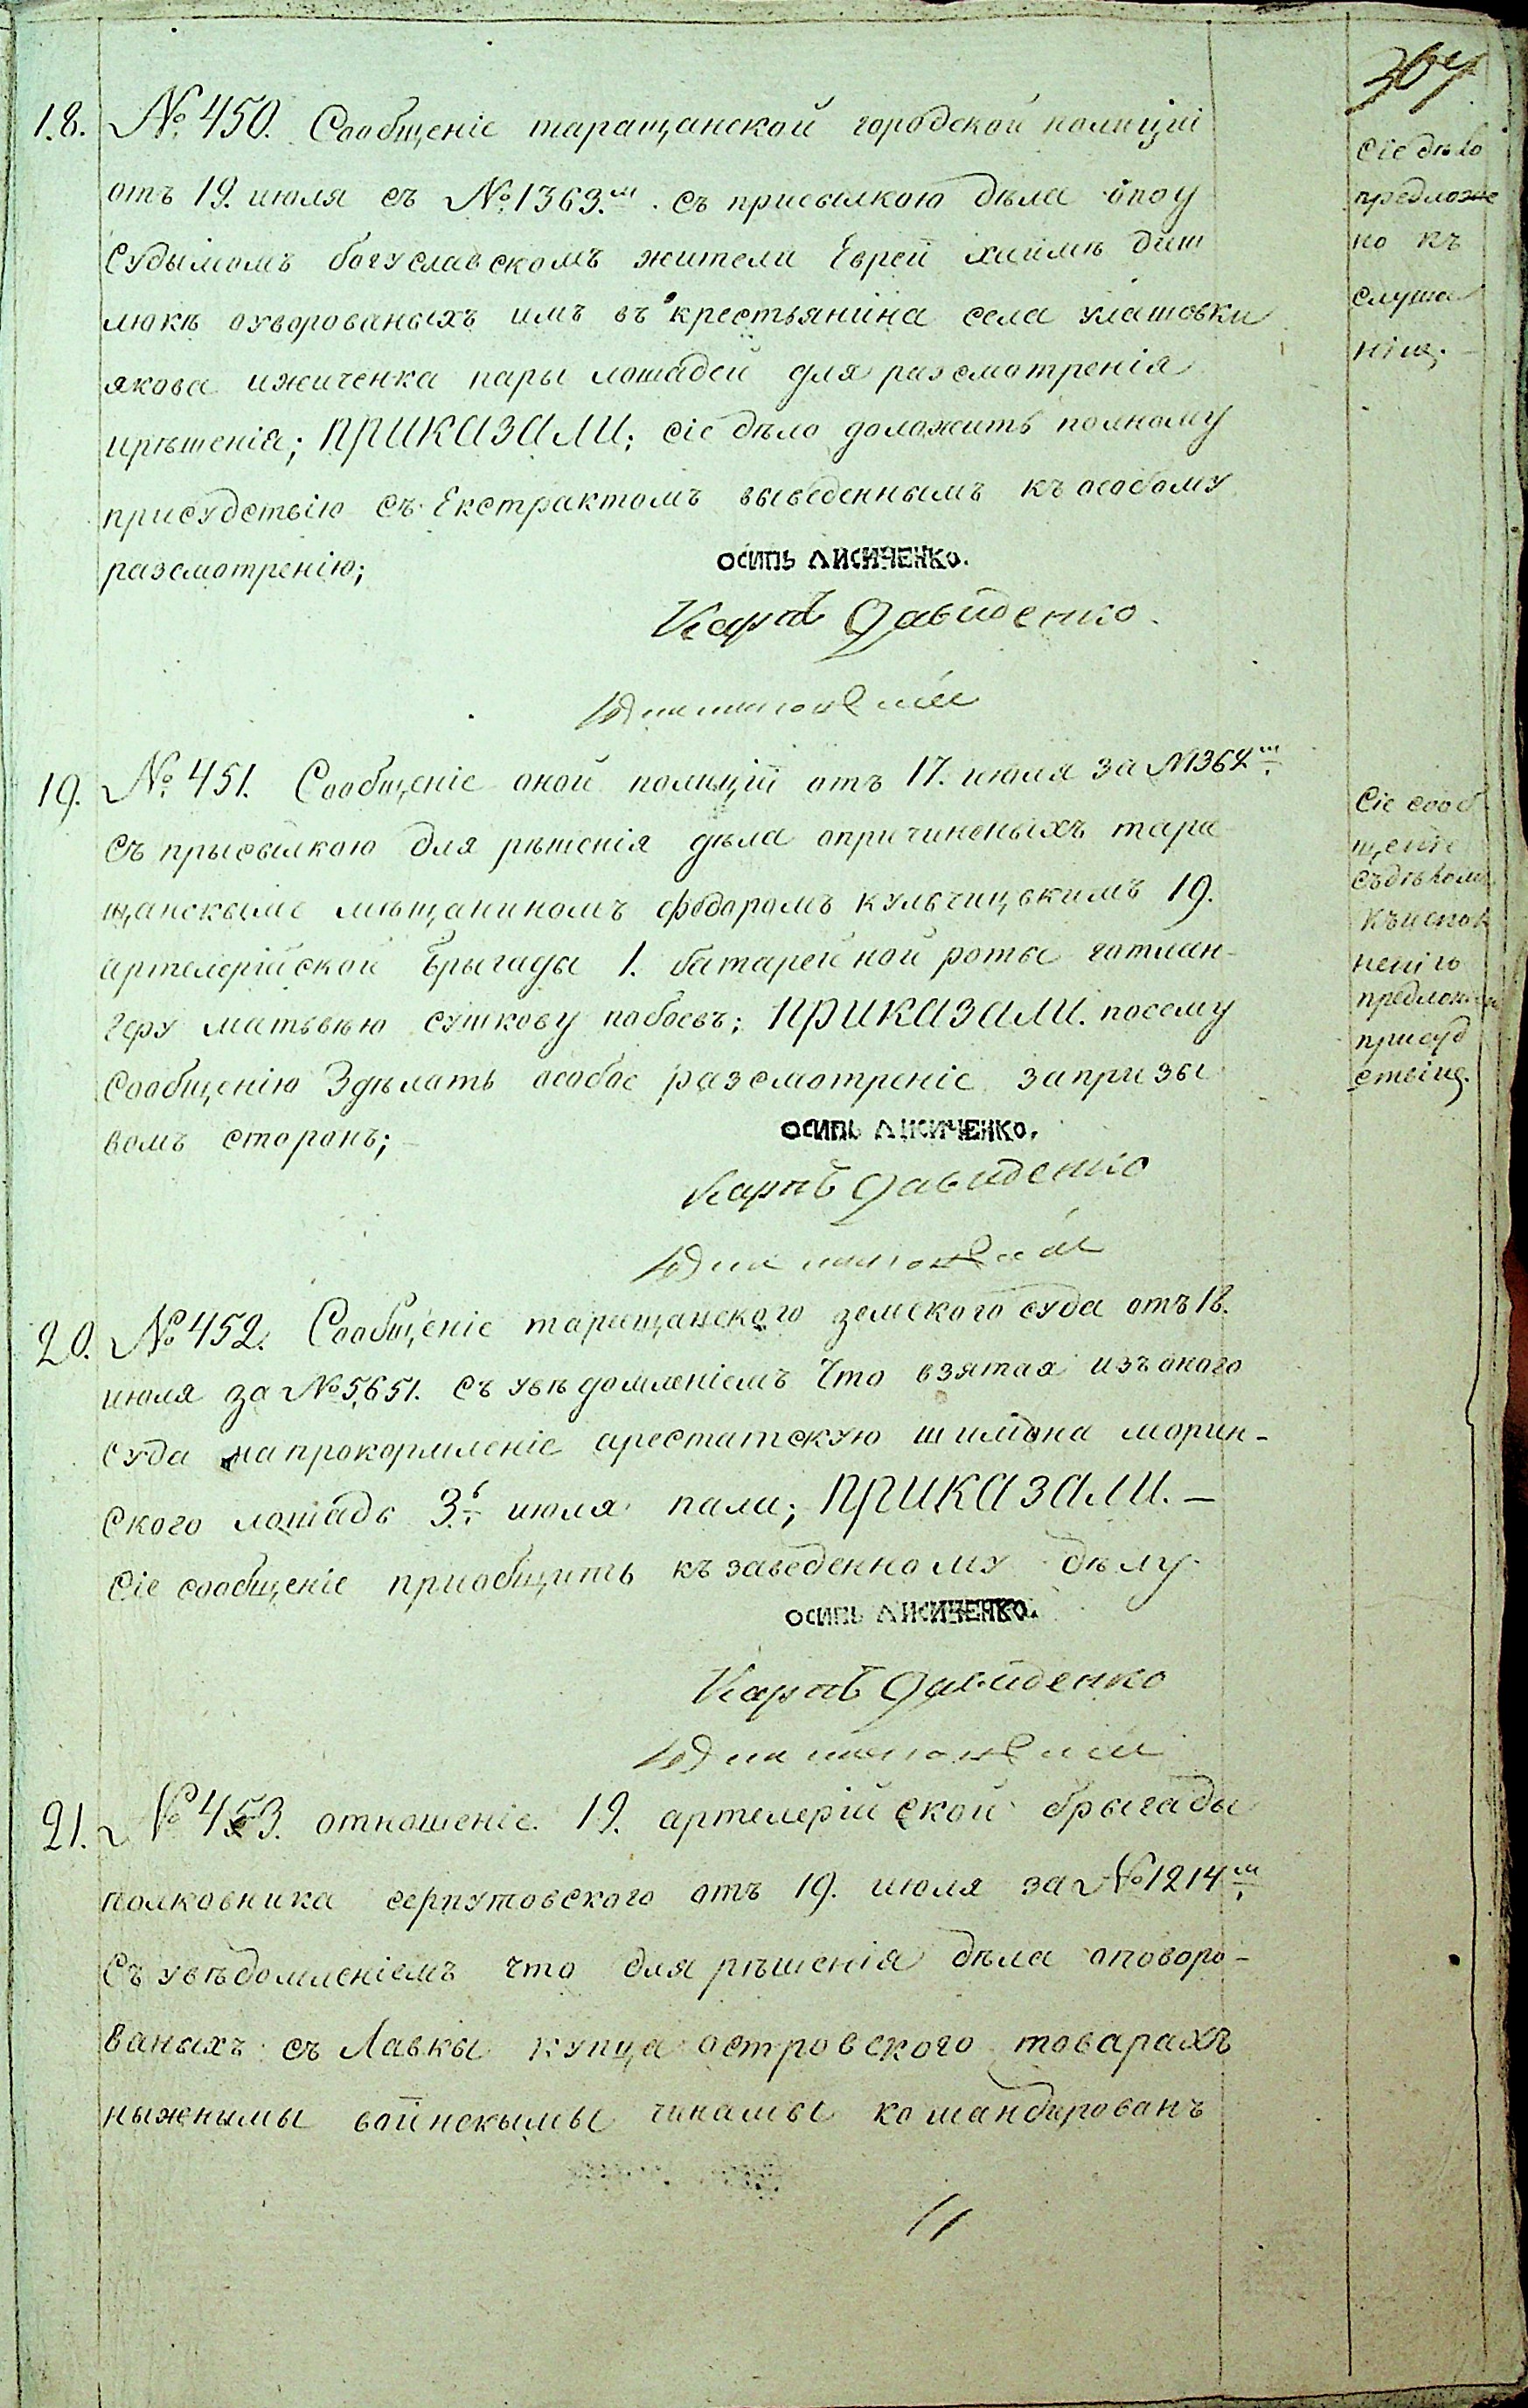 18. № 450. Сообщеніе таращанской городской полиціи
отъ 19. июля съ № 1363.м съ присылкою дѣла опоу
судымомъ богуславскомъ жители Еврей хаимѣ диш
люкѣ оуворованыхъ имъ въ крестьянина села улашовки
якова ижиченка пары лошадей для разсмотренія
ирѣшенія; ПРИКАЗАЛИ; сіе дѣло доложить полному
присудствію съ Екстрактомъ выведеннымъ къ особому
разсмотренію;
ОСИПЬ ЛИСИЧЕНКО.
Карпъ Давиденко.
Сіе дѣло
предложе
но къ
слуша
нію.
19. № 451. Сообщеніе оной полиціи отъ 17. июля за № 1364м
съ прысылкою для рѣшенія дѣла опричиненыхъ тара
щанскыме мѣщаниномъ федоромъ кульчицькимъ 19.
артелерійской брыгады 1. батарейной роты гатлан-
геру матьвѣю сушкову побоевъ; ПРИКАЗАЛИ. посему
сообщенію Здѣлать особое разсмотреніе запризы
вомъ сторонъ;
ОСИПЬ ЛИСИЧЕНКО.
Карпъ Давиденко
Сіе сооб
щеніе
съдѣломъ
къиспол
нению
предложен
присуд
ствію.
20. № 452. Сообщеніе таращанского земского суда отъ 18.
июля за № 5651. съ увѣдомленіемъ Что взятая изъ оного
суда на прокормленіе арестатскую шлиіона морин-
ского лошадь 3.ь июля пала; ПРИКАЗАЛИ. —
Сіе сообщеніе приобщить къ заведенному дѣлу.
ОСИПЬ ЛИСИЧЕНКО.
Карпъ Давиденко
21. № 453. отношеніе 19. артелерійской брыгады
полковника серпутовского отъ 19. июля за № 1214м
Съ увѣдомленіемъ что для рѣшенія дѣла оповоро-
ваныхъ съ Лавкы купца островского товарахъ
ныжнимы воинскымы чинамы командированъ